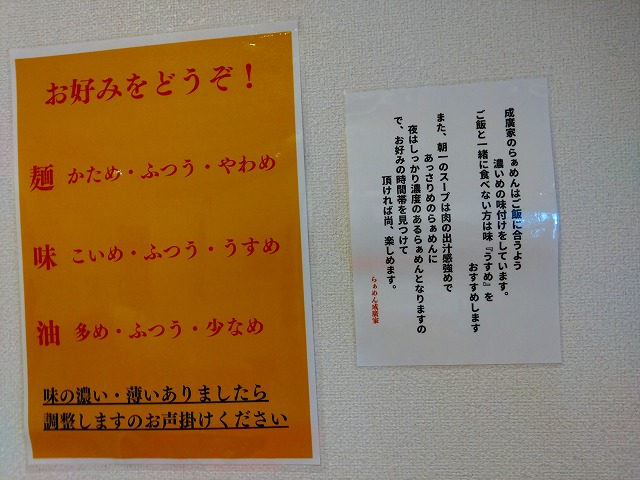 お好みをどうぞ！
麺 かため・ふつう・やわめ
味 こいめ・ふつう・うすめ
油 多め・ふつう・少なめ
味の濃い・薄いありましたら
調整しますのお声掛けください
成廣家のらぁめんはご飯に合うよう
濃いめの味付けをしています。
ご飯と一緒に食べない方は味『うすめ』を
おすすめします
また、朝一のスープは肉の出汁感強めで
あっさりめのらぁめんに
夜はしっかり濃度のあるらぁめんとなりますの
で、お好みの時間帯を見つけて
頂ければ尚、楽しめます。
らぁめん成廣家